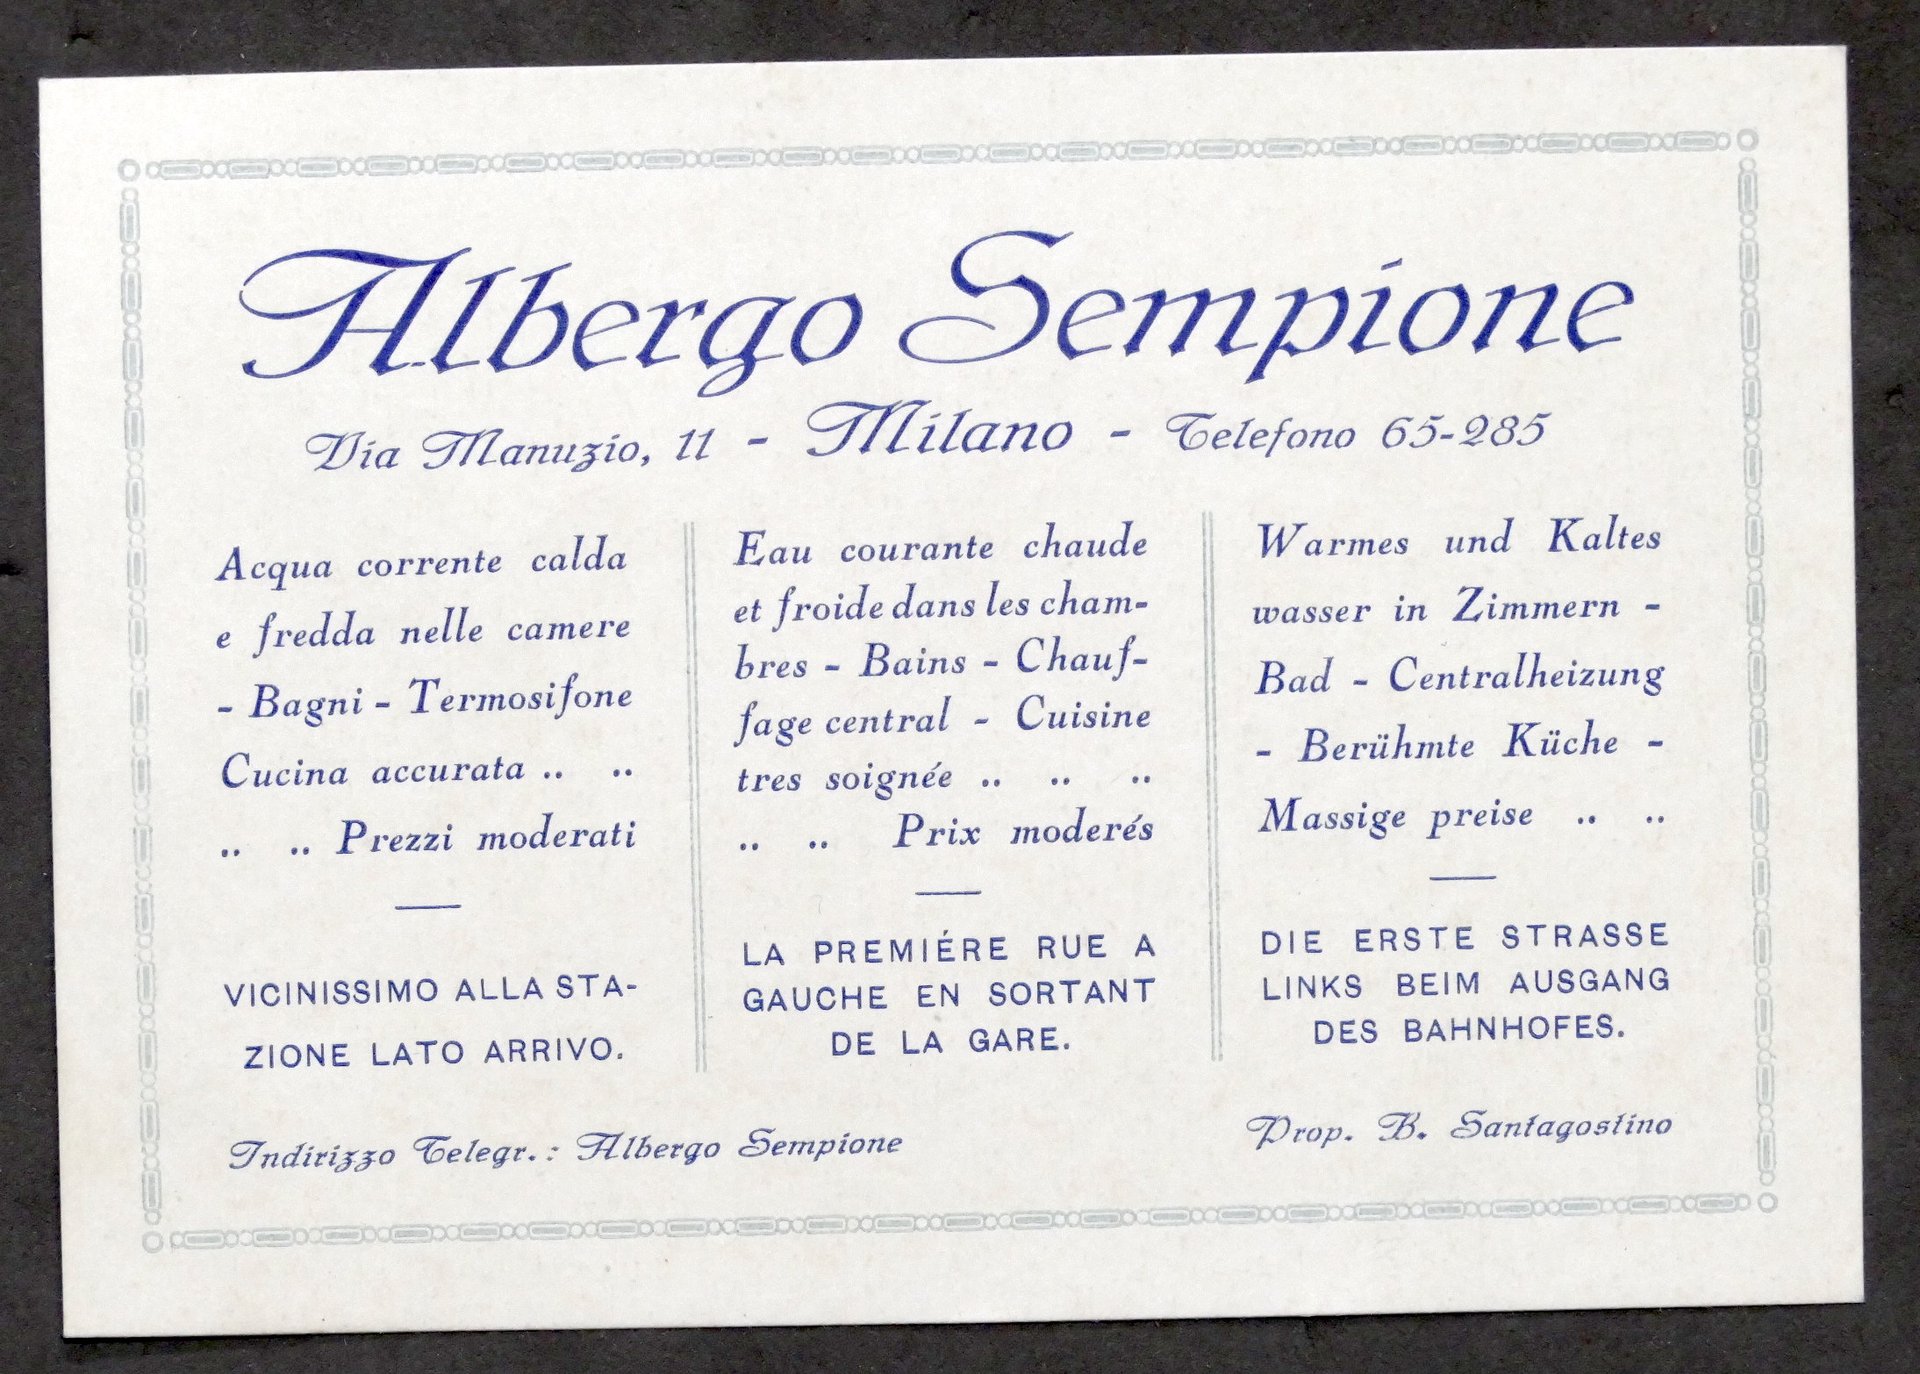 Albergo Sempione
Via Manuzio, 11 - Milano - Telefono 65-285
Acqua corrente calda
e fredda nelle camere
- Bagni - Termosifone
Cucina accurata .. ..
.. .. Prezzi moderati
VICINISSIMO ALLA STA-
ZIONE LATO ARRIVO.
Eau courante chaude
et froide dans les cham-
bres - Bains - Chauf-
fage central - Cuisine
tres soignée .. .. ..
.. .. Prix moderés
LA PREMIÉRE RUE A
GAUCHE EN SORTANT
DE LA GARE.
Warmes und Kaltes
wasser in Zimmern -
Bad - Centralheizung
- Berühmte Küche -
Massige preise .. ..
DIE ERSTE STRASSE
LINKS BEIM AUSGANG
DES BAHNHOFES.
Indirizzo Telegr.: Albergo Sempione
Prop. B. Santagostino